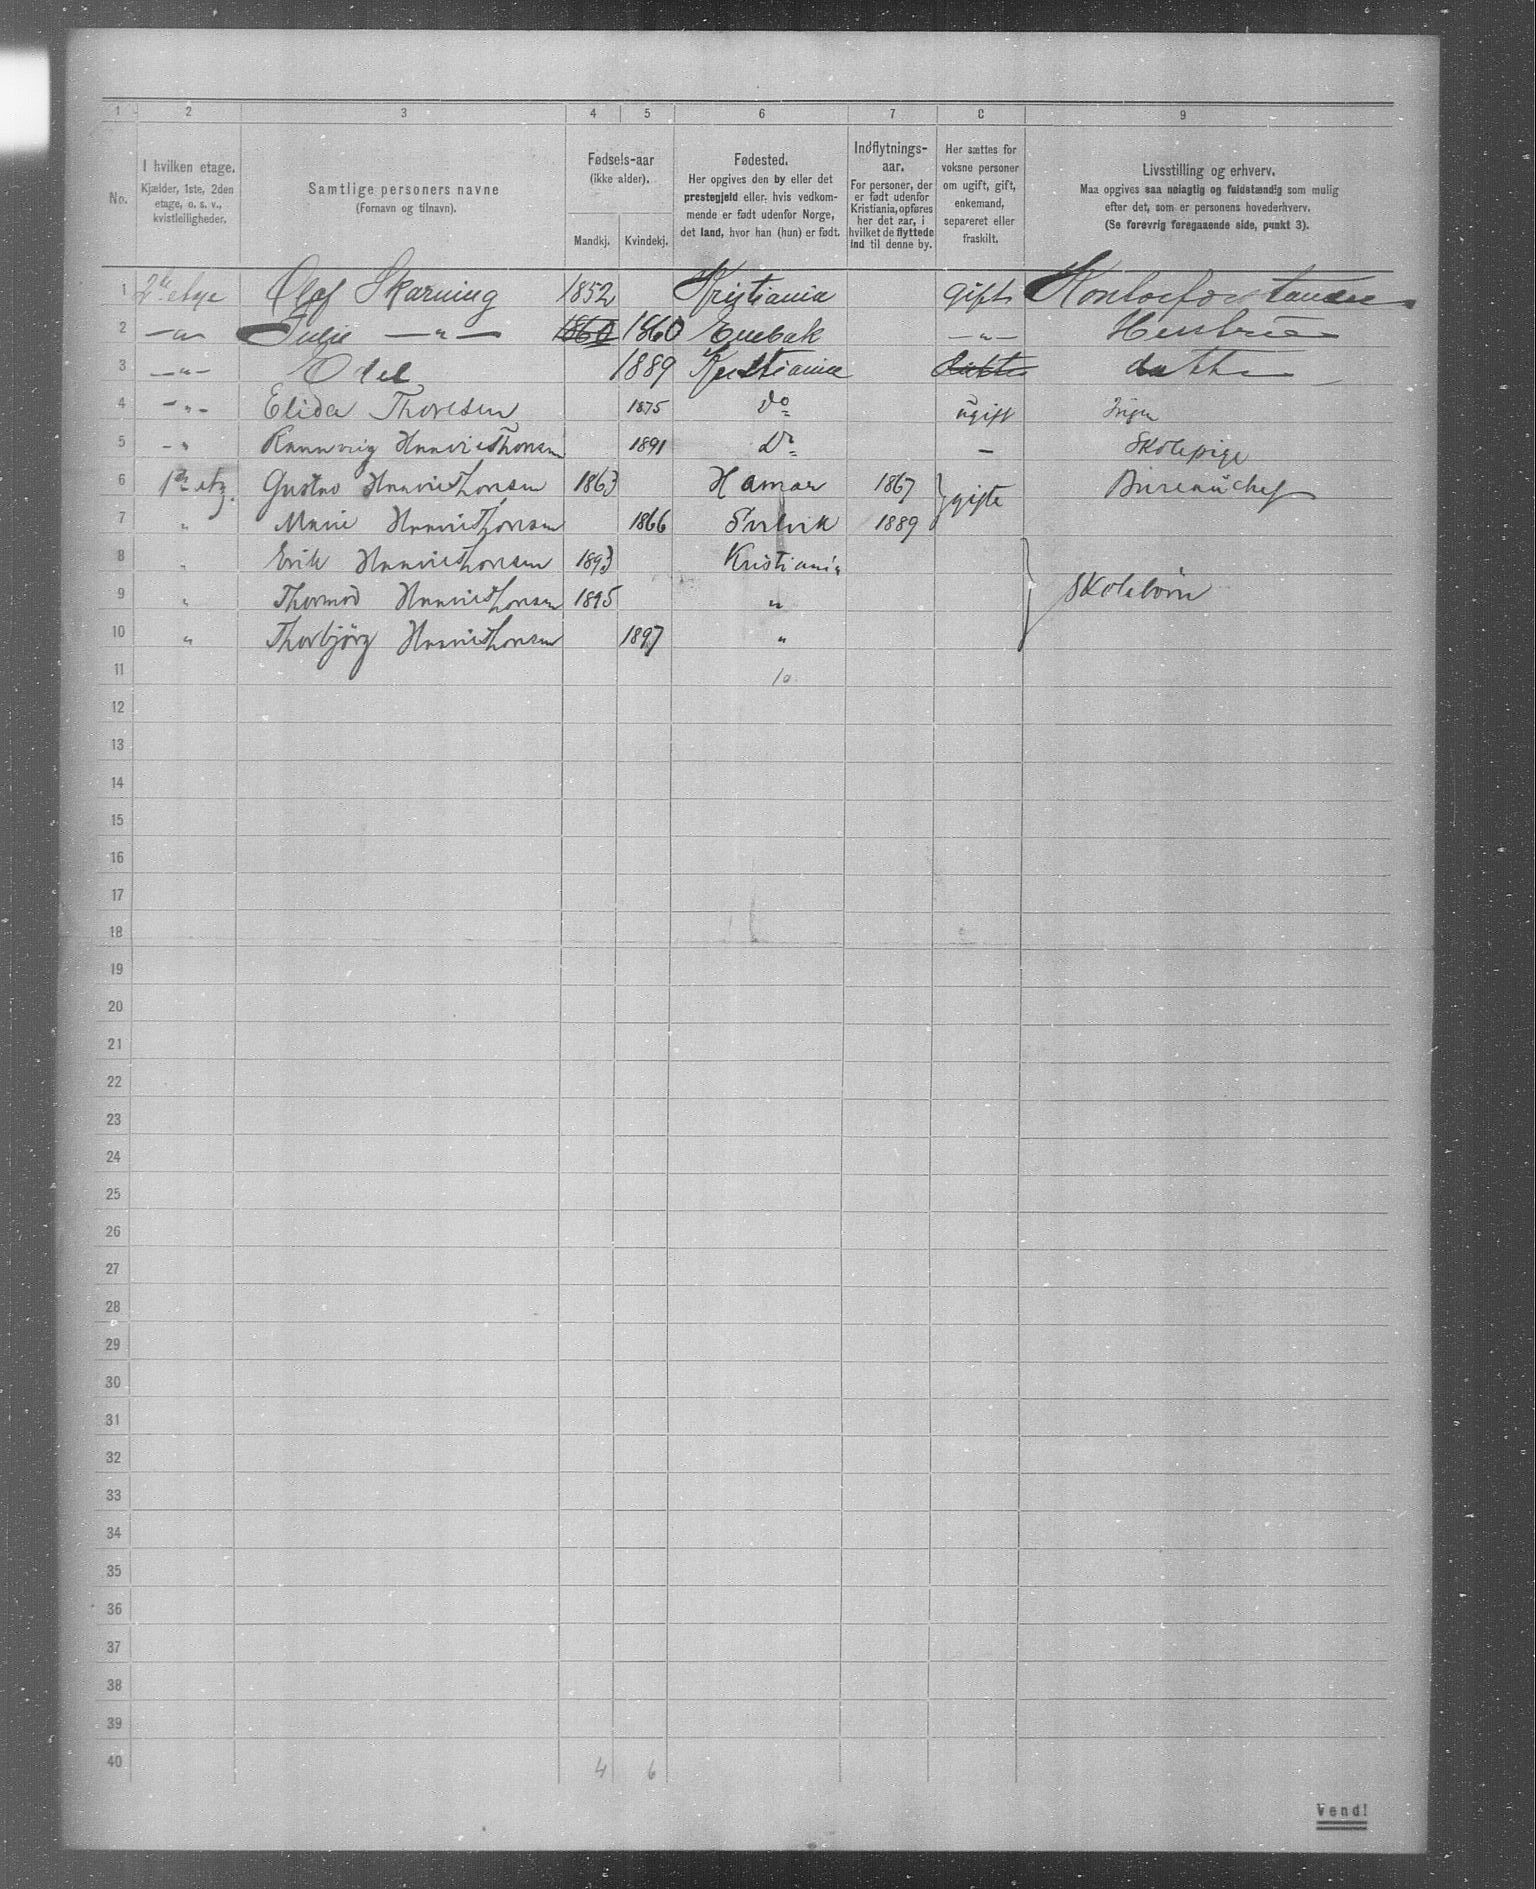 1 2 3 4 5 6 7 8 9
No.
I hvilken etage.
Kjælder, 1ste, 2den
etage, o. s. v.,
kvistleiligheder.
Samtlige personers navne
(Fornavn og tilnavn).
Fødsels-aar
(ikke alder).
Mandkj. Kvindekj.
Fødested.
Her opgives den by eller det
prestegjeld eller, hvis vedkom-
mende er født udenfor Norge,
det land, hvor han (hun) er født.
Indflytnings-
aar.
For personer, der
er født udenfor
Kristiania, opføres
her det aar, i
hvilket de flyttede
ind til denne by.
Her sættes for
voksne personer
om ugift, gift,
enkemand,
separeret eller
fraskilt.
Livsstilling og erhverv.
Maa opgives saa nøiagtig og fuldstændig som mulig
efter det, som er personens hovederhverv.
(Se forøvrig foregaaende side, punkt 3).
1 2den etage Olaf Skarning 1852 Kristiania gift Kontorforstander
2 —"— Julie —"— 1860 1860 Enebak —"— Hustru
3 —"— Odel 1889 Kristiania datter datter
4 —"— Elida Thoresen 1875 do ugift Ingen
5 —" Rannveig HnavieThoresen 1891 do — Skolepige
6 1ste etg. Gustav HnavieThoresen 1863 Hamar 1867 } gifte Bureauchef
7 " Marie HnavieThoresen 1866 Svelvik 1889
8 " Erik HnavieThoresen 1893 Kristiania } Skolebørn
9 " Thormod HnavieThoresen 1895 "
10 " Thorbjørg HnavieThoresen 1897 "
11 10
12
13
14
15
16
17
18
19
20
21
22
23
24
25
26
27
28
29
30
31
32
33
34
35
36
37
38
39
40 4 6
Vend!